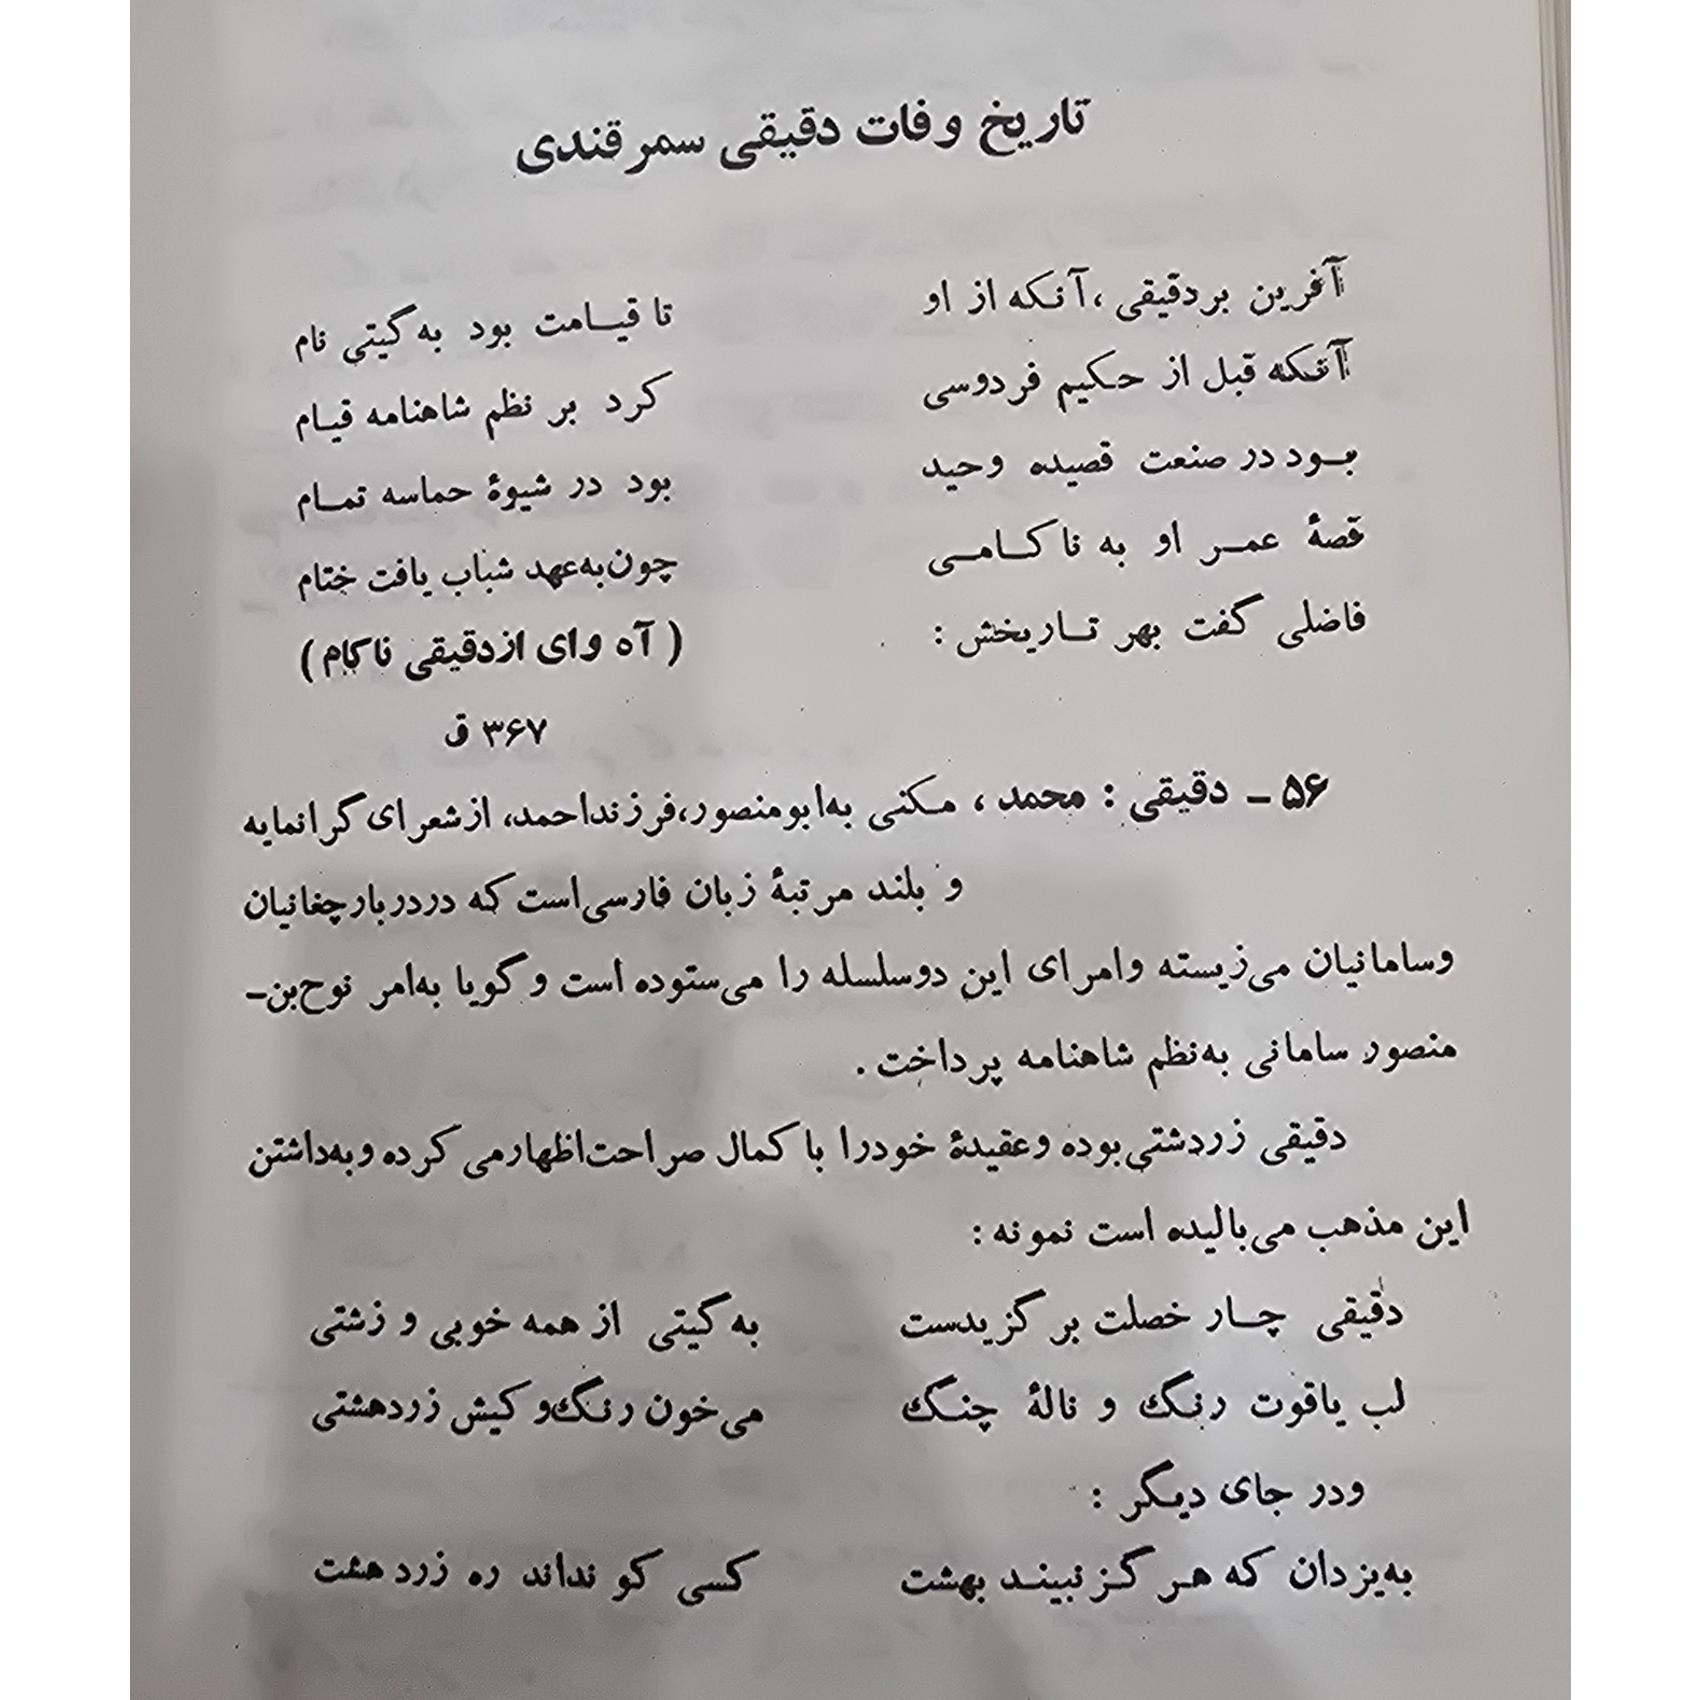 تاریخ وفات دقیقی سمرقندی
آفرین بر دقیقی ، آنکه از او تا قیامت بود به گیتی نام
آنکه قبل از حکیم فردوسی کرد بر نظم شاهنامه قیام
بود در صنعت قصیده وحید بود در شیوهٔ حماسه تمام
قصهٔ عمر او به ناکامی چون به عهد شباب یافت ختام
فاضلی گفت بهر تاریخش : ( آه وای از دقیقی ناکام )
۳۶۷ ق
۵۶ ـ دقیقی : محمد ، مکنی به ابومنصور، فرزند احمد، از شعرای گرانمایه
و بلند مرتبهٔ زبان فارسی است که در دربار چغانیان
و سامانیان می‌زیسته و امرای این دو سلسله را می‌ستوده است و گویا به امر نوح‌بن‌ـ
منصور سامانی به نظم شاهنامه پرداخت .
دقیقی زردشتی بوده و عقیدهٔ خود را با کمال صراحت اظهار می کرده و به داشتن
این مذهب می‌بالیده است نمونه :
دقیقی چار خصلت برگزیدست به گیتی از همه خوبی و زشتی
لب یاقوت رنگ و نالهٔ چنگ می خون رنگ و کیش زردهشتی
و در جای دیگر :
به یزدان که هرگز نبیند بهشت کسی کو نداند ره زردهشت